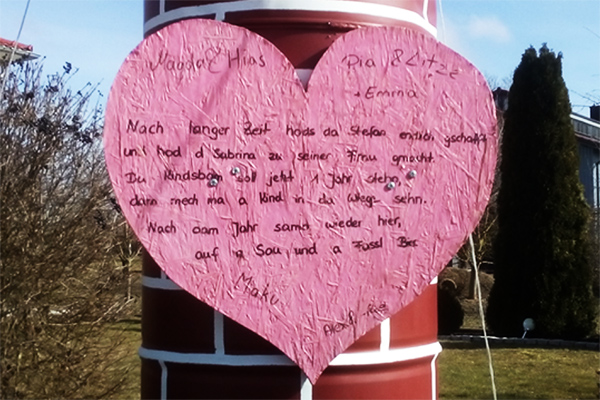 Magda & Hias
Pia & Litze
+ Emma
Nach langer Zeit hods da Stefan endlich gschafft
und hod d Sabrina zu seiner Frau gmacht.
Du Kindsbam soll jetzt 1 Jahr stehn,
dann mech ma a Kind in da Wiege sehn.
Nach oam Jahr sama wieder hier,
auf a Sau und a Fussl Bier